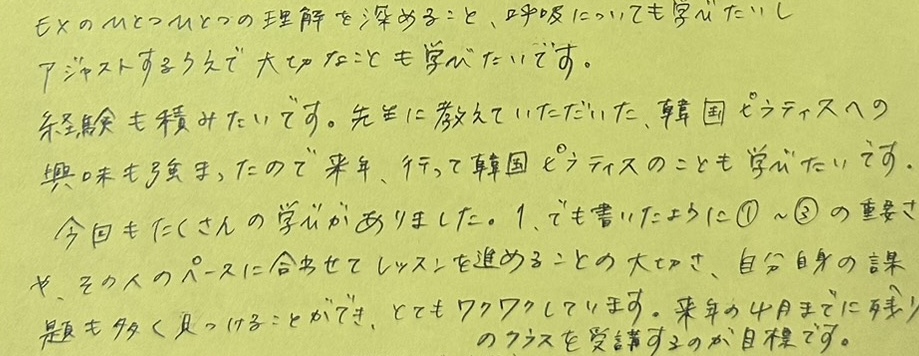 EXのひとつひとつの理解を深めること、呼吸についても学びたいし
アジャストするうえで大切なことも学びたいです。
経験も積みたいです。先生に教えていただいた、韓国ピラティスへの
興味も強まったので来年、行って韓国ピラティスのことも学びたいです。
今回もたくさんの学びがありました。1、でも書いたように①～③の重要さ
や、その人のペースに合わせてレッスンを進めることの大切さ、自分自身の課
題も多く見つけることができ、とてもワクワクしています。来年の4月までに残り
のクラスを受講するのが目標です。